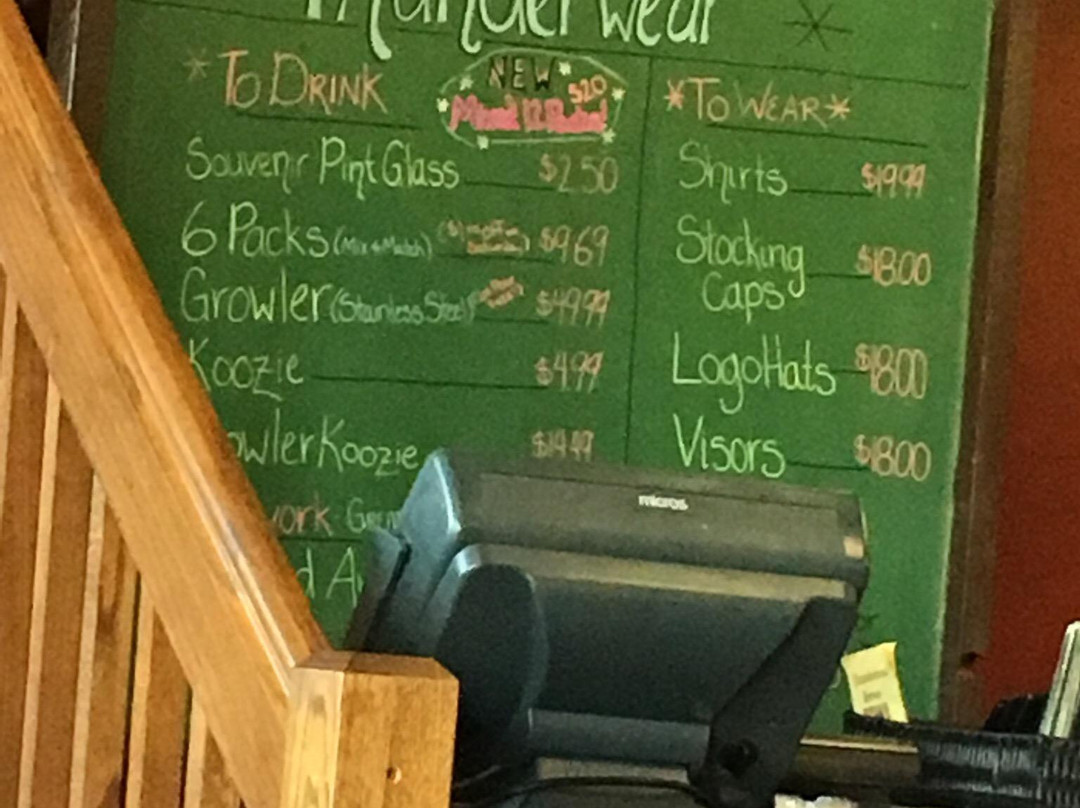 wear
*To Drink
NEW
$20
*To Wear*
Souvenir Pint Glass $2.50
6 Packs (Mix & Match) $9.69
Growler (Stainless Steel) $49.99
Koozie $4.99
owler Koozie
Shirts $19.99
Stocking Caps $18.00
Logo Hats $18.00
Visors $18.00
ork
d A
micros